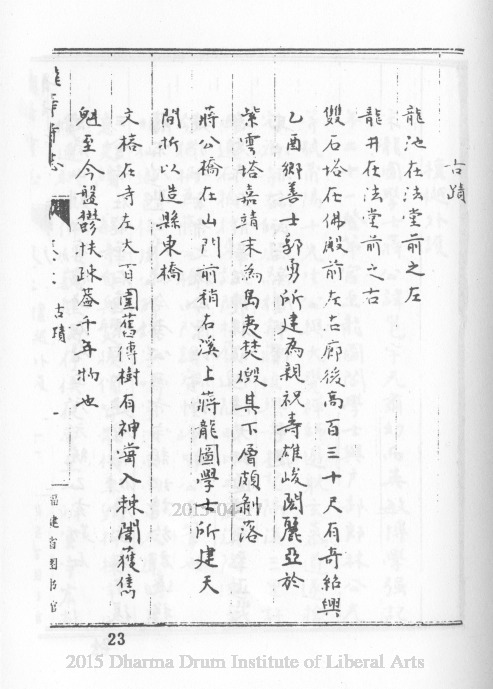 古蹟
龍池在法堂前之左
龍井在法堂前之右
雙石塔在佛殿前左右廊後高百三十尺有奇紹興
乙酉鄉善士郭勇所建為親祝壽雄峻閎麗亞於
紫雲塔嘉靖末為島夷焚燬其下層頗剝落
蔣公橋在山門前稍右溪上蔣龍圖學士所建天
間折以造縣東橋
文樟在寺左大百圍舊傳樹有神嘗入棘闈獲雋
魁至今盤鬱扶疎蓋千年物也
龍華寺志
古蹟
一
福建省图书馆
23
2015 Dharma Drum Institute of Liberal Arts